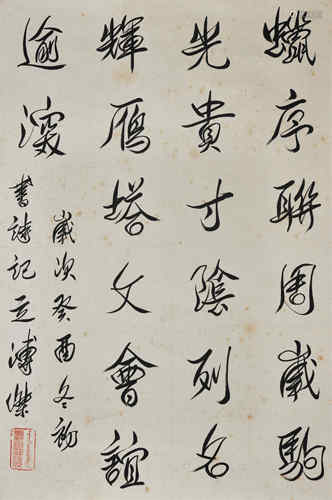 蠟序聯周歲駒
光貴寸陰列名
輝鴈塔文會誼
逾深
歲次癸酉冬初
書誌記溥傑